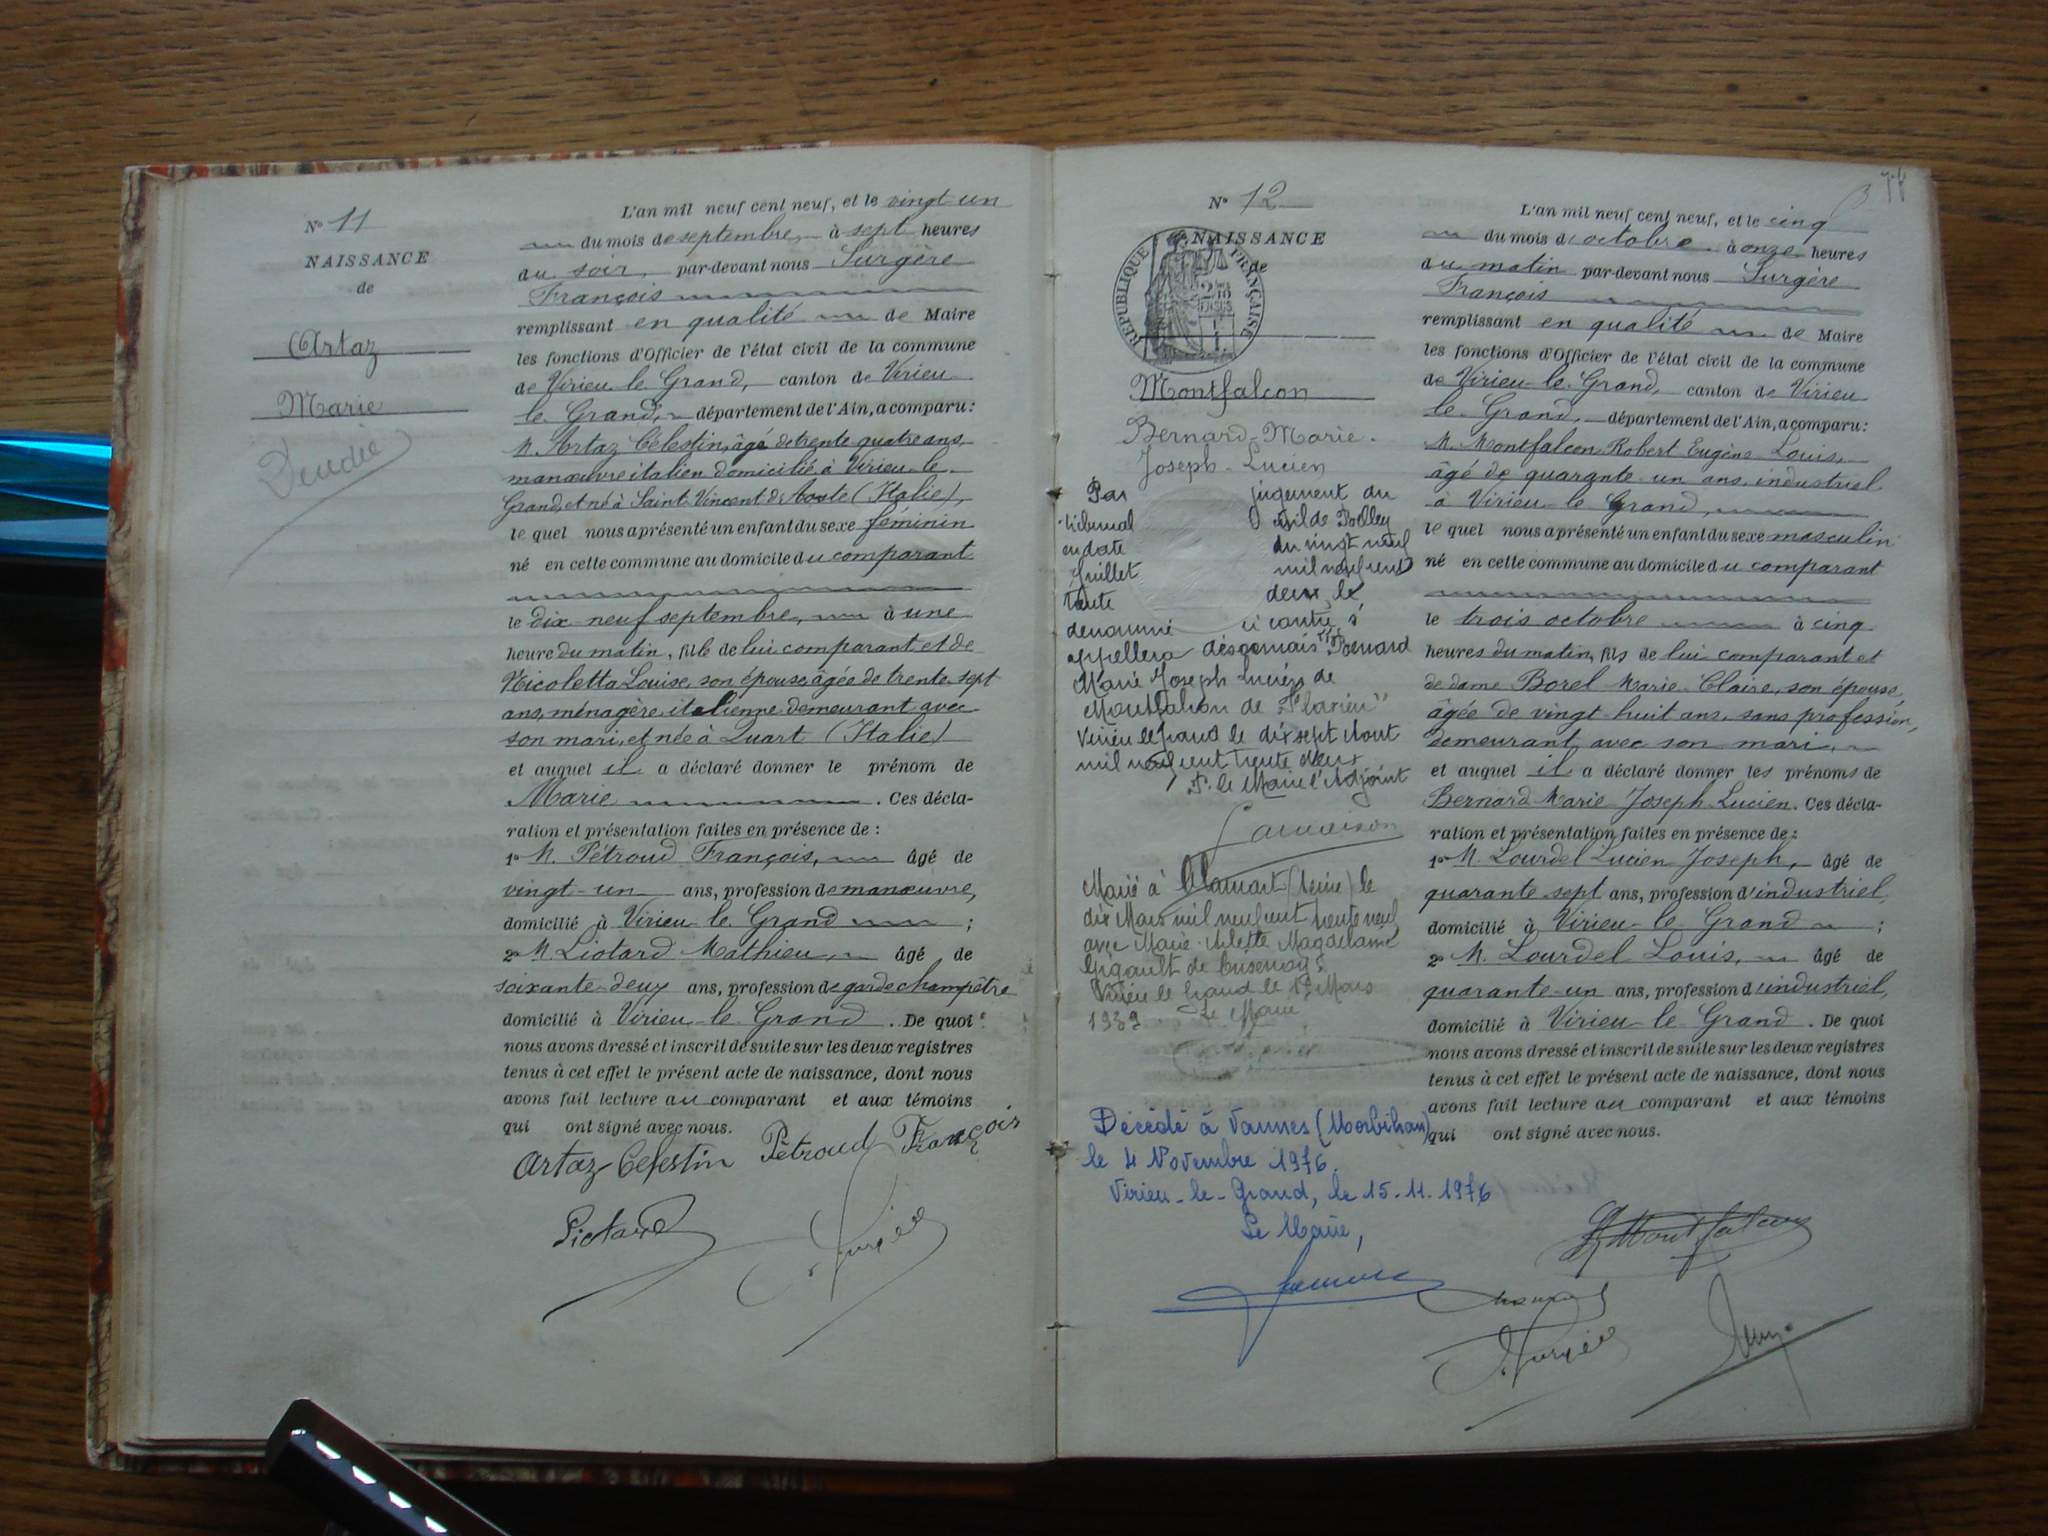 N° 11
NAISSANCE
de
Artaz
Marie
L'an mil neuf cent neuf, et le vingt-un
du mois de septembre, à sept heures
du soir, par-devant nous Surgère
François
remplissant en qualité de Maire
les fonctions d'Officier de l'état civil de la commune
de Virieu-le-Grand, canton de Virieu
le-Grand, département de l'Ain, a comparu :
M. Artaz Célestin, âgé de trente quatre ans,
manœuvre italien domicilié à Virieu-le-
Grand, et né à Saint-Vincent de Aoste (Italie),
le quel nous a présenté un enfant du sexe féminin
né en cette commune au domicile du comparant
le dix neuf septembre, à une
heure du matin, fille de lui comparant et de
Nicoletta Louise, son épouse âgée de trente-sept
ans, ménagère italienne demeurant avec
son mari, et née à Quart (Italie)
et auquel il a déclaré donner le prénom de
Marie . Ces décla-
ration et présentation faites en présence de :
1° M. Pétroud François, âgé de
vingt-un ans, profession de manœuvre,
domicilié à Virieu-le-Grand ;
2° M. Liotard Mathieu, âgé de
soixante-deux ans, profession de garde champêtre
domicilié à Virieu-le-Grand . De quoi
nous avons dressé et inscrit de suite sur les deux registres
tenus à cet effet le présent acte de naissance, dont nous
avons fait lecture au comparant et aux témoins
qui ont signé avec nous.
Artaz Celestin Pétroud François
Liotard
Surgère
N° 12
NAISSANCE
de
RÉPUBLIQUE FRANÇAISE
Montfalcon
Bernard-Marie-
Joseph-Lucien
Par jugement du
tribunal civil de Belley
en date du vingt neuf
Juillet mil neuf cent
trente deux, le
dénommé ci contre s'
appellera désormais "Bernard
Marie Joseph Lucien de
Montfalcon de Flaxieu"
Virieu le Grand le dix sept Aout
mil neuf cent trente deux
P. le Maire l'Adjoint
Marié à Clamart (Seine) le
dix Mars mil neuf cent trente neuf
avec Marie-Arlette Magdelaine
Gigault de Crisenoy
Virieu le Grand le Mars
1939 Le Maire
Décédé à Vannes (Morbihan)
le 4 Novembre 1976.
Virieu-le-Grand, le 15.11.1976
Le Maire,
L'an mil neuf cent neuf, et le cinq
du mois d'octobre à onze heures
du matin par-devant nous Surgère
François
remplissant en qualité de Maire
les fonctions d'Officier de l'état civil de la commune
de Virieu-le-Grand, canton de Virieu
le-Grand, département de l'Ain, a comparu :
M. Montfalcon Robert Eugène Louis,
âgé de quarante-un ans, industriel
à Virieu-le-Grand,
le quel nous a présenté un enfant du sexe masculin
né en cette commune au domicile du comparant
le trois octobre à cinq
heures du matin, fils de lui comparant et
de dame Borel Marie-Claire, son épouse,
âgée de vingt-huit ans, sans profession,
demeurant avec son mari,
et auquel il a déclaré donner les prénoms de
Bernard Marie Joseph Lucien. Ces décla-
ration et présentation faites en présence de :
1° M. Lourdel Lucien Joseph, âgé de
quarante sept ans, profession d'industriel,
domicilié à Virieu-le-Grand ;
2° M. Lourdel Louis, âgé de
quarante-un ans, profession d'industriel,
domicilié à Virieu-le-Grand . De quoi
nous avons dressé et inscrit de suite sur les deux registres
tenus à cet effet le présent acte de naissance, dont nous
avons fait lecture au comparant et aux témoins
qui ont signé avec nous.
R Montfalcon
Surgère